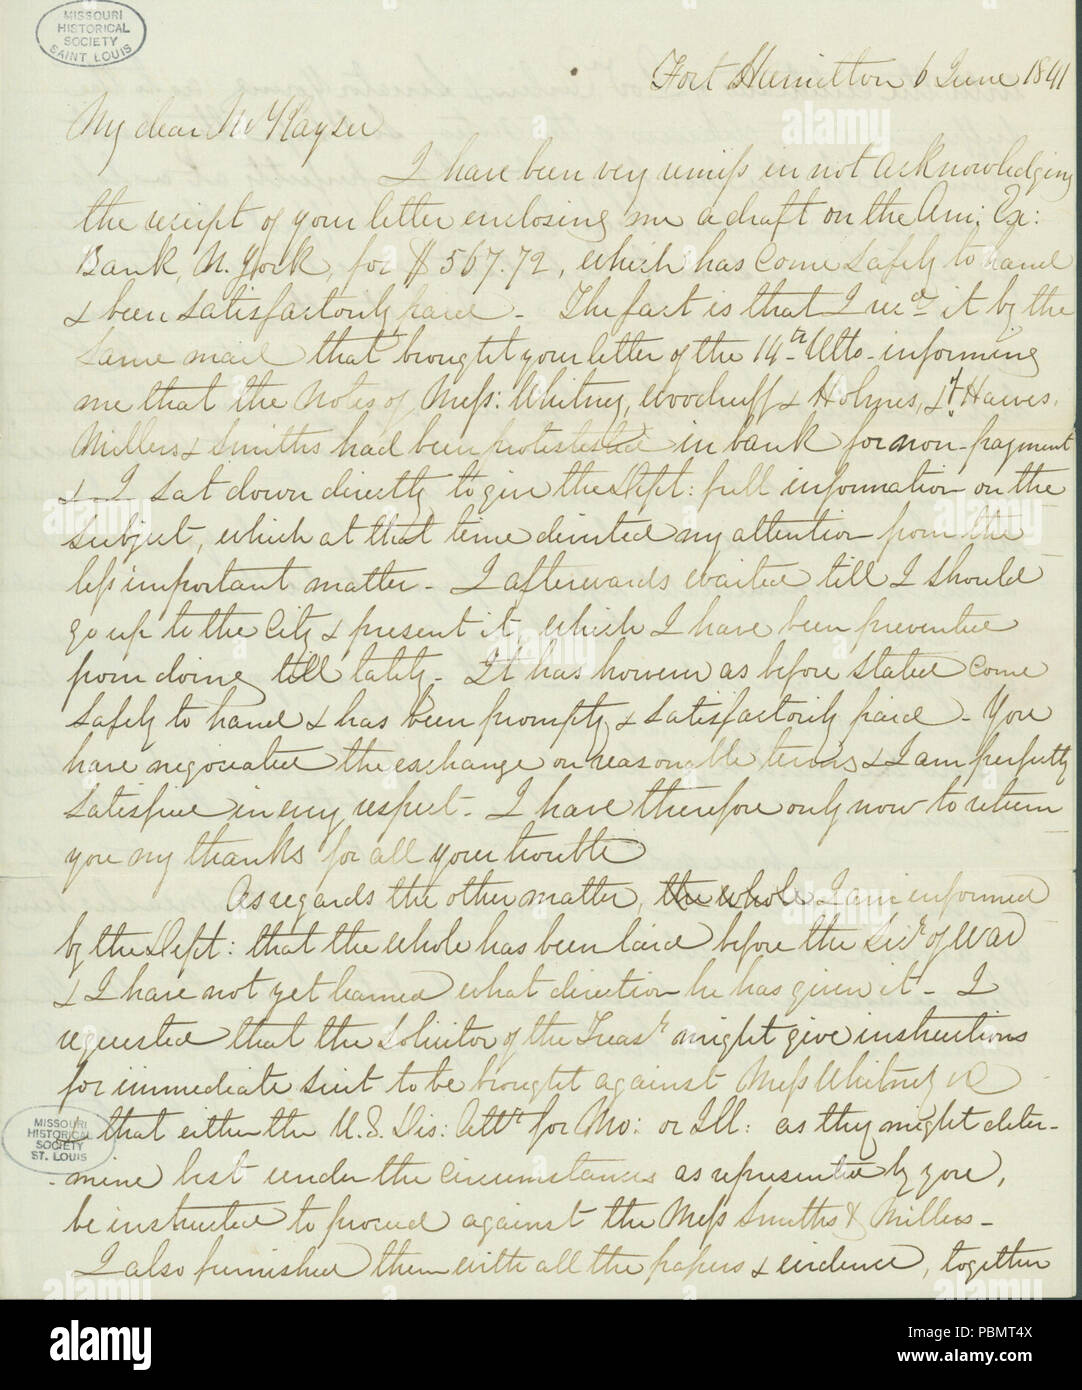 MISSOURI
HISTORICAL
SOCIETY
SAINT LOUIS
Fort Hamilton 6 June 1841
My dear Mr Kayser
I have been very remiss in not acknowledging
the receipt of your letter enclosing me a draft on the Am: Ex:
Bank, N. York, for $567.72, which has come safely to hand
& been satisfactorily paid - The fact is that I recd it by the
same mail that brought your letter of the 14th Ulto - informing
me that the Notes of Mess: Whitney, Woodruff & Holmes, & Hawes,
Millers & Smiths had been protested in bank for non-payment
& I sat down directly to give the Dept: full information on the
subject, which at that time diverted my attention from the
less important matter - I afterwards waited till I should
go up to the City & present it, which I have been prevented
from doing till lately - It has however as before stated come
safely to hand & has been promptly & satisfactorily paid - You
have negociated the exchange on reasonable terms & I am perfectly
satisfied in every respect - I have therefore only now to return
you my thanks for all your trouble
As regards the other matter, the whole I am informed
by the Dept: that the whole has been laid before the Secr of War
& I have not yet learned what direction he has given it - I
requested that the Solicitor of the Treasr might give instructions
for immediate suit to be brought against Mess Whitney &c
& that either the U.S. Dis: Attr for Mo: or Ill: as they might deter-
mine best under the circumstances as represented by you,
be instructed to proceed against the Mess Smiths & Millers -
I also furnished them with all the papers & evidence, together
MISSOURI
HISTORICAL
SOCIETY
ST. LOUIS
alamy
Image ID: PBMT4X
www.alamy.com